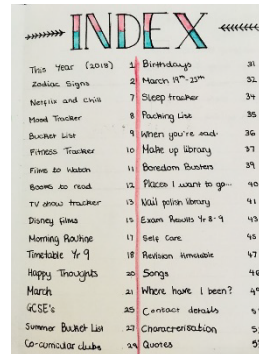 INDEX
This Year (2018) 1
Zodiac Signs 2
Netflix and Chill 7
Mood Tracker 8
Bucket List 9
Fitness Tracker 10
Films to Watch 11
Books to read 12
TV show tracker 13
Disney films 15
Morning Routine 17
Timetable Yr 9 18
Happy Thoughts 20
March 21
GCSE's 25
Summer Bucket List 27
Co-curricular clubs 29
Birthdays 31
March 19th-25th 32
Sleep tracker 34
Packing List 35
When you're sad. 36
Make up library 37
Boredom Busters 39
Places I want to go... 40
Nail polish library 41
Exam Results Yr 8-9 43
Self Care 45
Revision timetable 47
Songs 46
Where have I been? 49
Contact details
Characterisation
Quotes